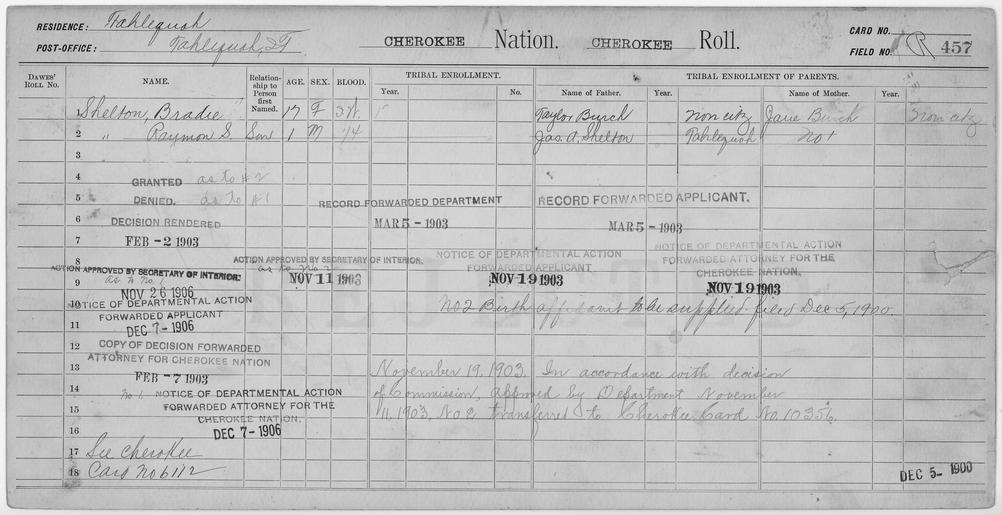 RESIDENCE: Tahlequah
POST-OFFICE: Tahlequah, I.T.
CHEROKEE Nation. CHEROKEE Roll.
CARD NO.
FIELD NO. R 457
DAWES' ROLL NO. NAME. Relationship to Person first Named. AGE. SEX. BLOOD. TRIBAL ENROLLMENT. TRIBAL ENROLLMENT OF PARENTS.
Year. No. Name of Father. Year. Name of Mother. Year.
1 Shelton, Bradie 17 F Taylor Burch Non citz Jane Burch Non citz
2 " Raymon S Son 1 M 1/4 Jas. A. Shelton Tahlequah No 1
3
4
GRANTED as to #2
5 DENIED. as to #1
RECORD FORWARDED DEPARTMENT
MAR 5 - 1903
RECORD FORWARDED APPLICANT.
MAR 5 - 1903
6 DECISION RENDERED
7 FEB - 2 1903
8 ACTION APPROVED BY SECRETARY OF INTERIOR.
as to No. 2
NOV 11 1903
NOTICE OF DEPARTMENTAL ACTION
FORWARDED APPLICANT
NOV 19 1903
NOTICE OF DEPARTMENTAL ACTION
FORWARDED ATTORNEY FOR THE
CHEROKEE NATION.
NOV 19 1903
ACTION APPROVED BY SECRETARY OF INTERIOR.
9 as to No. 1
NOV 26 1906
10 NOTICE OF DEPARTMENTAL ACTION
FORWARDED APPLICANT
No 2 Birth affidavit to be supplied. filed Dec 5, 1900
11 DEC 7 - 1906
12 COPY OF DECISION FORWARDED
ATTORNEY FOR CHEROKEE NATION
13 FEB - 7 1903
November 19, 1903. In accordance with decision
of Commission, approved by Department November
11, 1903, No. 2 transferred to Cherokee Card No. 10356.
14 No 1. NOTICE OF DEPARTMENTAL ACTION
15 FORWARDED ATTORNEY FOR THE
CHEROKEE NATION.
16 DEC 7 - 1906
17 See Cherokee
18 Card No 6112
DEC 5 - 1900